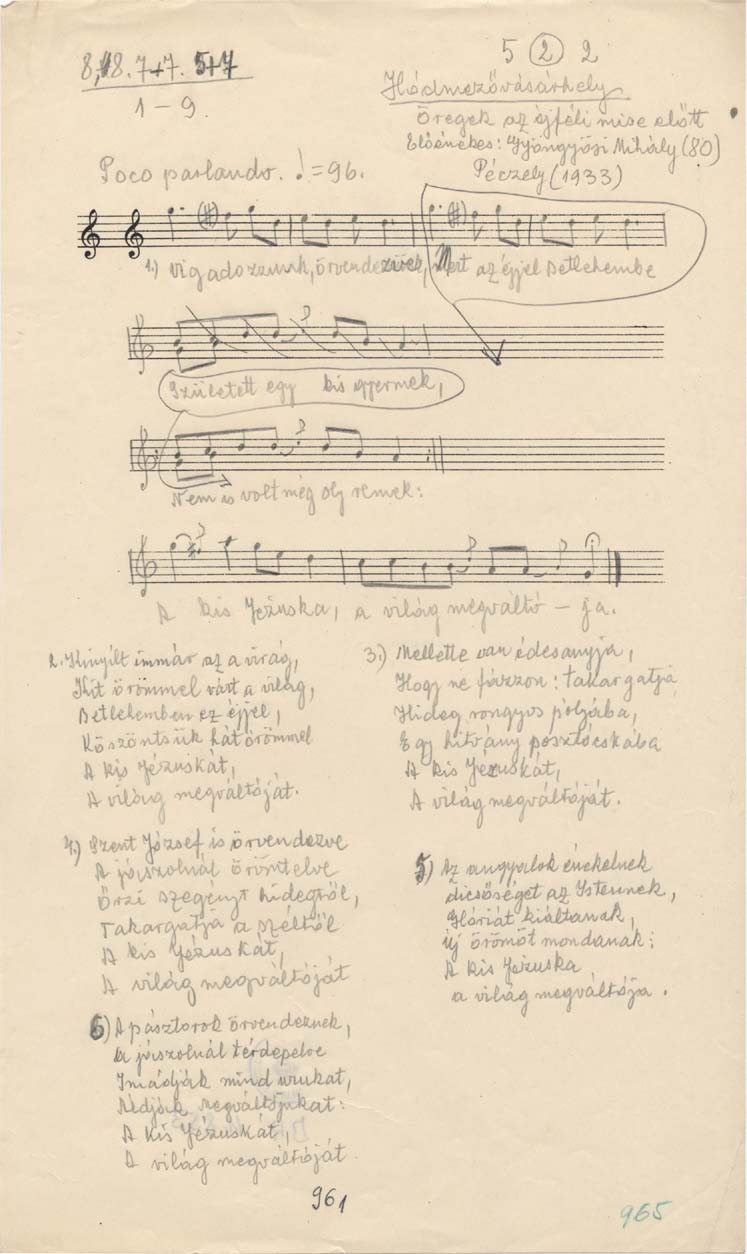 8,18. 7+7. 5+7
1-9.
5 2 2
Hódmezővásárhely
Öregek az éjféli mise előtt
Előénekes: Gyöngyösi Mihály (80)
Péczely (1933)
Poco parlando. ♩=96.
1.) Vigadozzunk, örvendezzünk, Mert az éjjel Betlehembe
Született egy kis gyermek,
Nem is volt még oly remek:
A kis Jézuska, a világ megváltó - ja.
2. Kinyílt immár az a virág,
Kit örömmel várt a világ,
Betlehemben ez éjjel,
Köszöntsük hát örömmel
A kis Jézuskát,
A világ megváltóját.
3.) Mellette van édesanyja,
Hogy ne fázzon: takargatja
Hideg rongyos pólyába,
Egy hitvány posztócskába
A kis Jézuskát,
A világ megváltóját.
4.) Szent József is örvendezve
A jászolnál örömtelve
Őrzi szegényt hidegtől,
Takargatja a széltől
A kis Jézuskát,
A világ megváltóját
5) Az angyalok énekelnek
dicsőséget az Istennek,
Glóriát kiáltanak,
új örömöt mondanak:
A kis Jézuska
a világ megváltója.
6) A pásztorok örvendeznek,
a jászolnál térdepelve
Imádják mind urukat,
Áldják megváltójukat:
A kis Jézuskát,
A világ megváltóját.
961
965